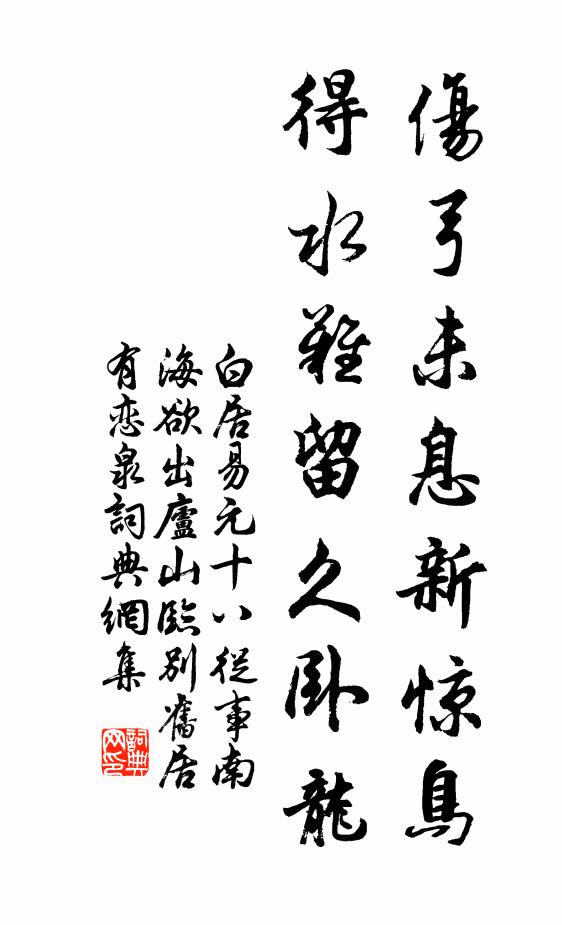 傷弓未息新惊鳥
得水難留久卧龍
白居易元十八從事南
海欲出廬山臨別舊居
有恋泉詞典網集
詞典
网印